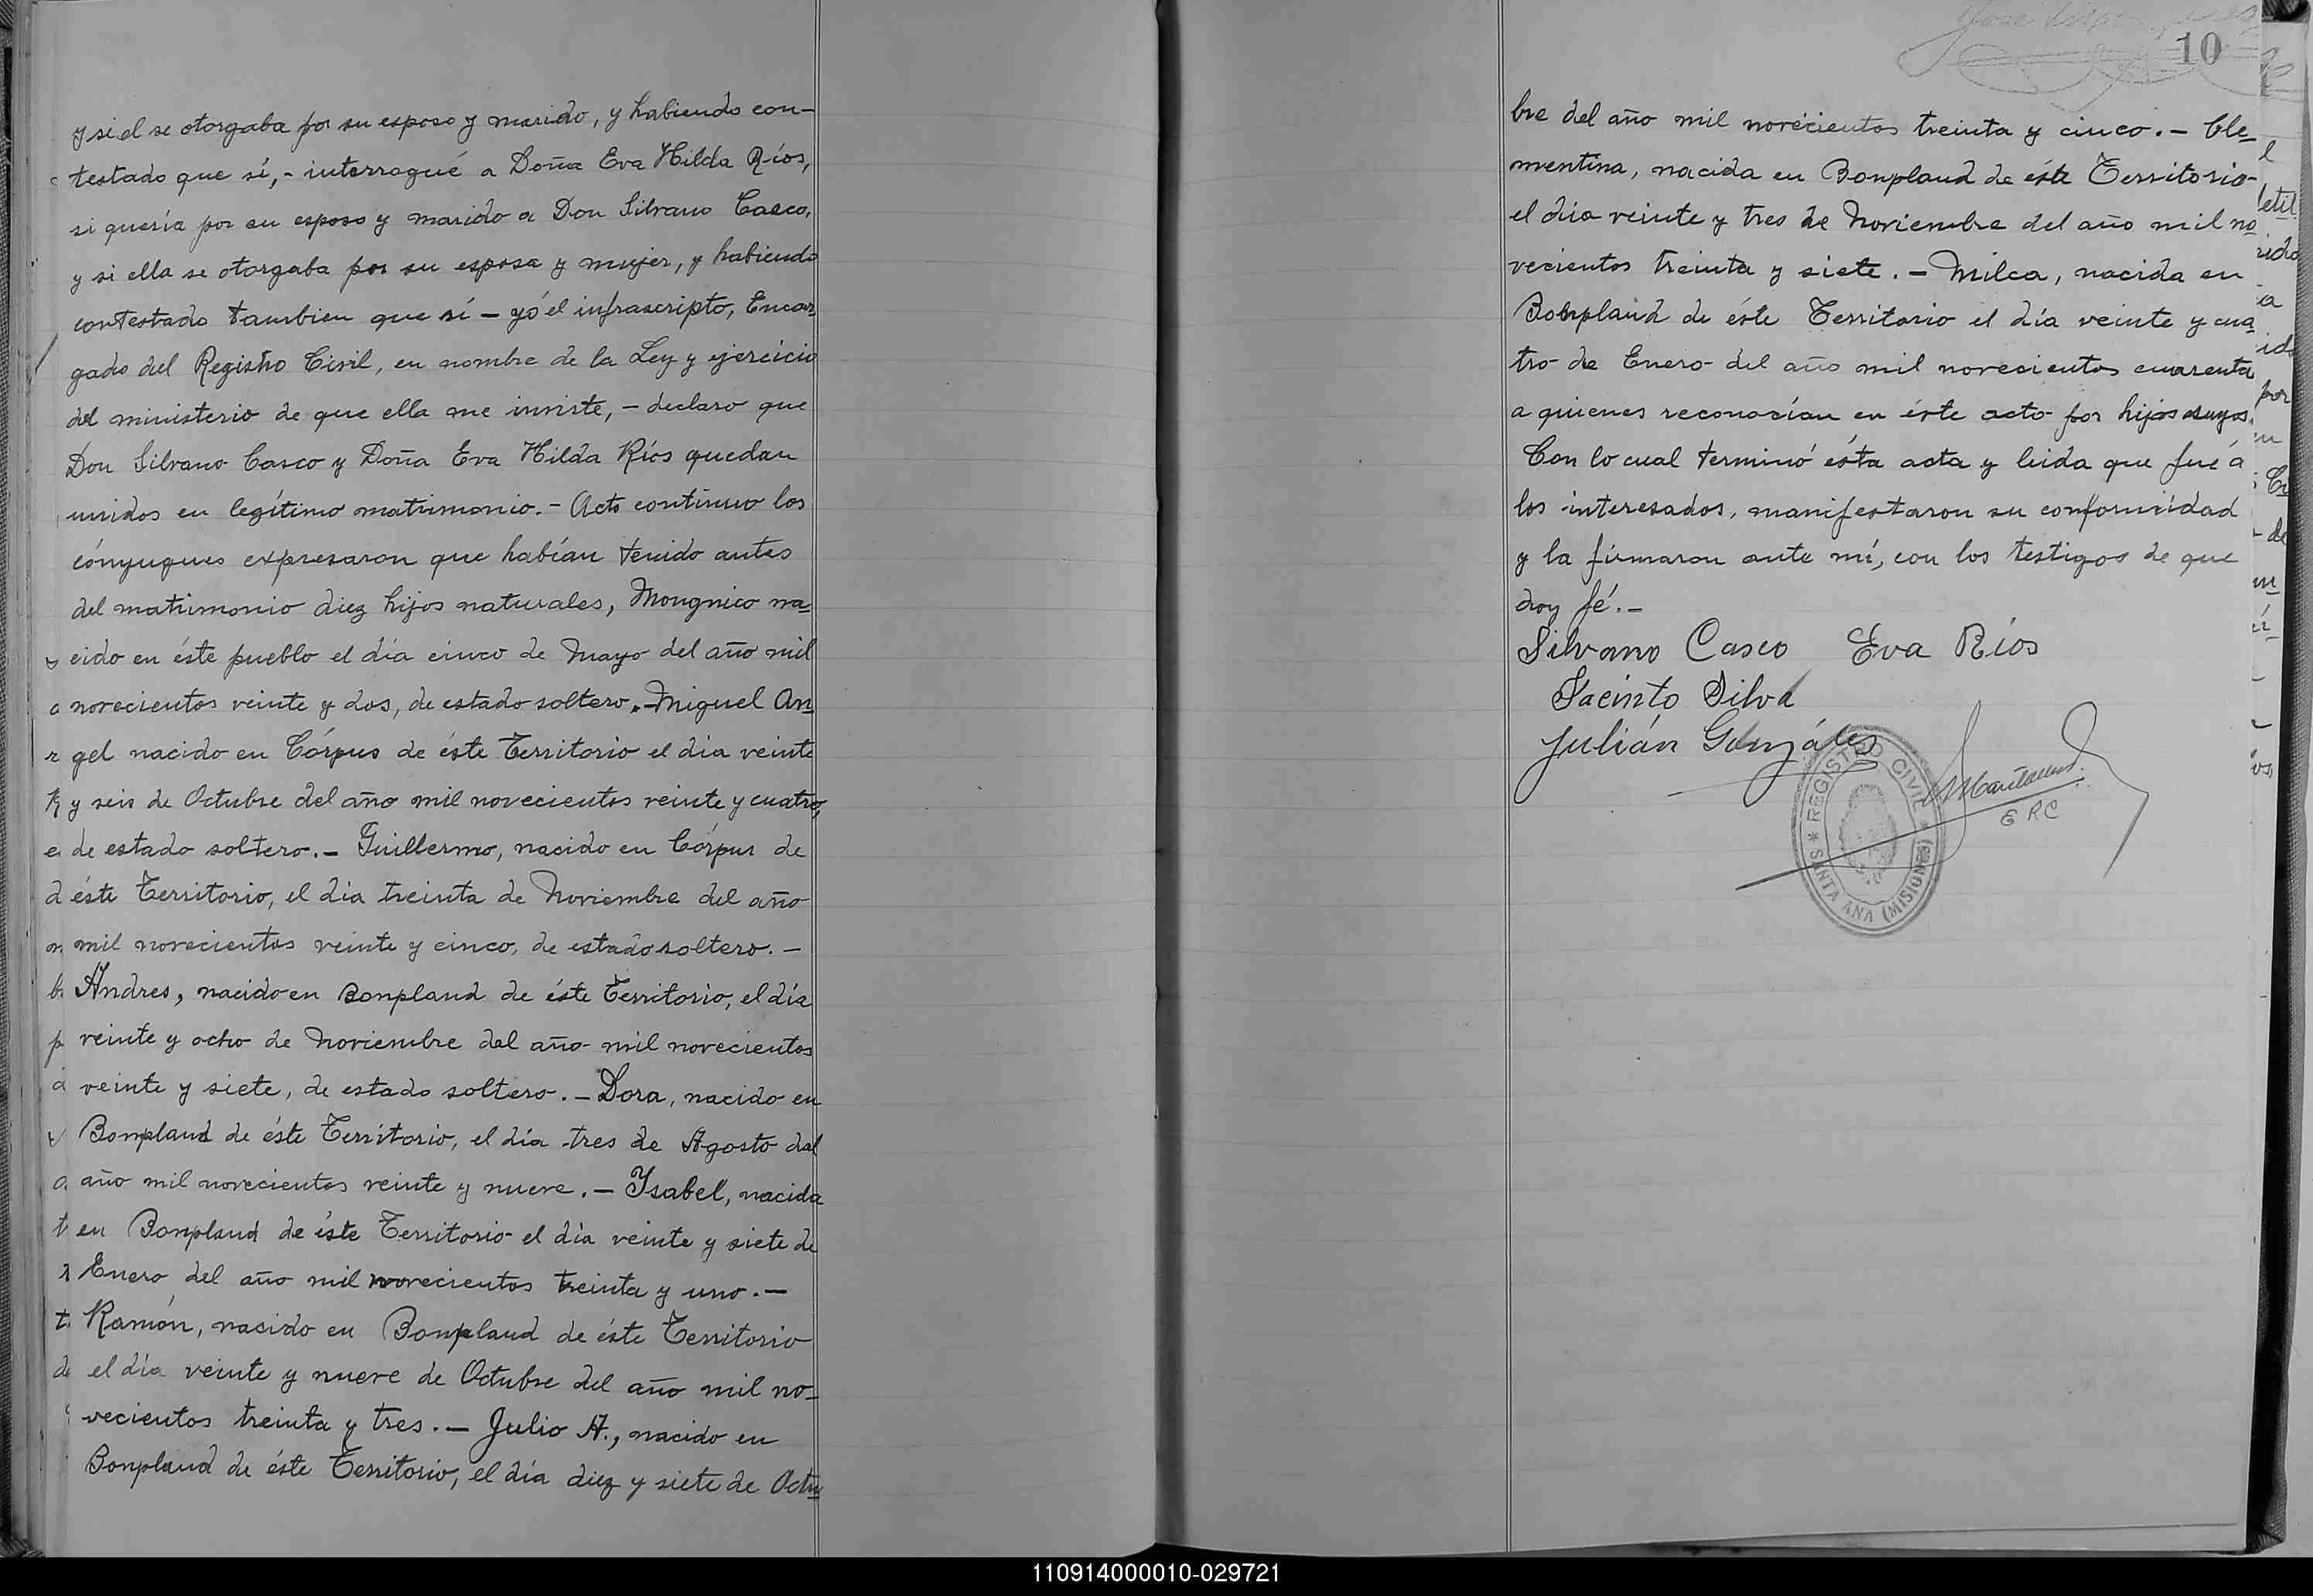 y si el se otorgaba por su esposo y marido, y habiendo con-
testado que sí,- interrogué a Doña Eva Hilda Ríos,
si quería por su esposo y marido a Don Silvano Casco,
y si ella se otorgaba por su esposa y mujer, y habiendo
contestado tambien que sí - yó el infrascripto, Encar
gado del Registro Civil, en nombre de la Ley y ejercicio
del ministerio de que ella me inviste, - declaro que
Don Silvano Casco y Doña Eva Hilda Ríos quedan
unidos en legítimo matrimonio. - Acto continuo los
cónyugues expresaron que habían tenido antes
del matrimonio diez hijos naturales, na
cido en éste pueblo el día cinco de Mayo del año mil
novecientos veinte y dos, de estado soltero. - Miguel An
gel nacido en Córpus de éste Territorio el dia veinte
y seis de Octubre del año mil novecientos veinte y cuatro,
de estado soltero. - Guillermo, nacido en Córpus de
éste Territorio, el dia treinta de Noviembre del año
mil novecientos veinte y cinco, de estado soltero. -
Andres, nacido en Bonpland de éste Territorio, el día
veinte y ocho de Noviembre del año mil novecientos
veinte y siete, de estado soltero. - Dora, nacido en
Bompland de éste Territorio, el día tres de Agosto del
año mil novecientos veinte y nueve. - Ysabel, nacida
en Bonpland de éste Territorio el día veinte y siete de
Enero del año mil novecientos treinta y uno. -
Ramón, nacido en Bonpland de éste Territorio
el día veinte y nueve de Octubre del año mil no-
vecientos treinta y tres. - Julio A., nacido en
Bonpland de éste Territorio, el día diez y siete de Octu
10
bre del año mil novecientos treinta y cinco. - Cle
mentina, nacida en Bonpland de éste Territorio
el día veinte y tres de Noviembre del año mil no
vecientos treinta y siete. - Milca, nacida en
Bonpland de éste Territorio el día veinte y cua
tro de Enero del año mil novecientos cuarenta
a quienes reconocían en éste acto por hijos suyos.
Con lo cual terminó ésta acta y leida que fué á
los interesados, manifestaron su conformidad
y la firmaron ante mí, con los testigos de que
doy fé. -
Silvano Casco Eva Ríos
Jacinto Silva
Julián Gonzáles
REGISTRO CIVIL
SANTA ANA (MISIONES)
E RC
110914000010-029721